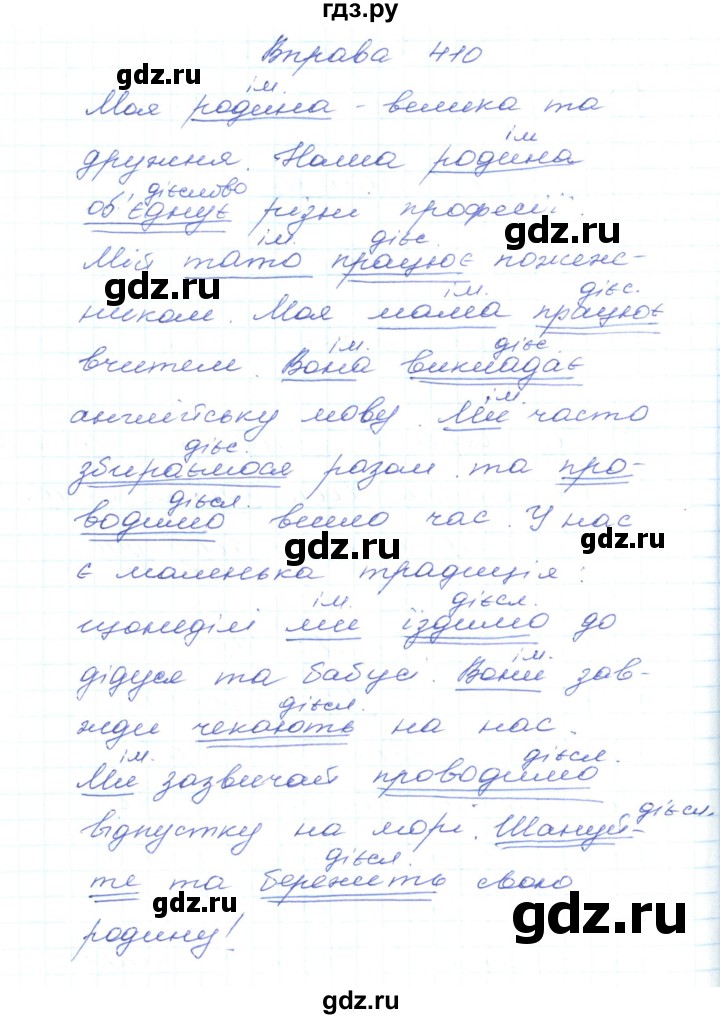 гдз.ру
Вправа 410
gdz.ru
ім.
Моя родина - велика та
ім
дружня. Наша родина
gdz.ru
дієслово
об'єднує різні професії.
gdz.ru
ім. дієс.
Мій тато працює пожеж-
gdz.ru
ім. дієс.
ником. Моя мама працює
ім. дієс
вчителем. Вона викладає
ім.
англійську мову. Ми часто
gdz.ru
дієс.
збираємося разом та про-
gdz.ru
дієсл.
водимо вільно час. У нас
gdz.ru
gdz.ru
є маленька традиція:
ім. дієсл.
щонеділі ми їздимо до
ім.
дідуся та бабусі. Вони зав-
gdz.ru
дієсл.
жди чекають на нас.
gdz.ru
ім. дієсл.
Ми зазвичай проводимо
дієсл.
відпустку на морі. Шануй-
дієсл.
те та бережіть свою
gdz.ru
gdz.ru
родину!
gdz.ru